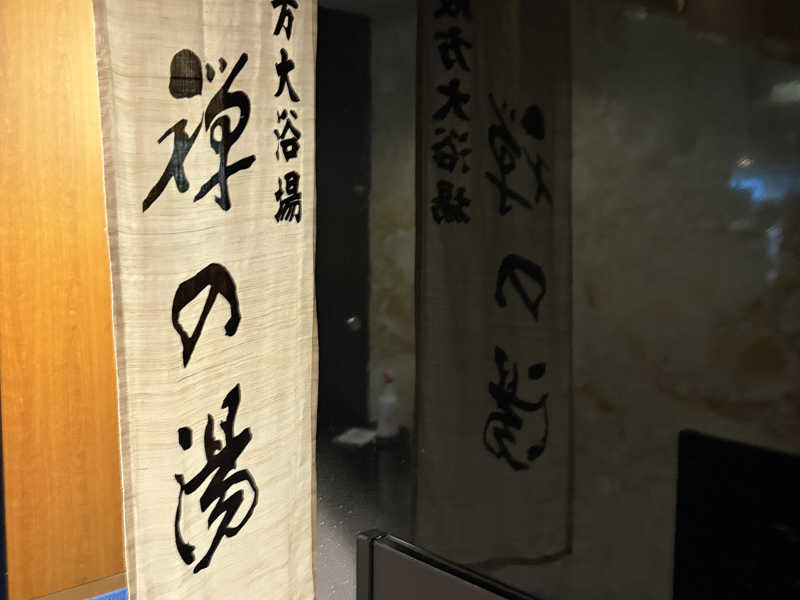 方大浴場
禅の湯